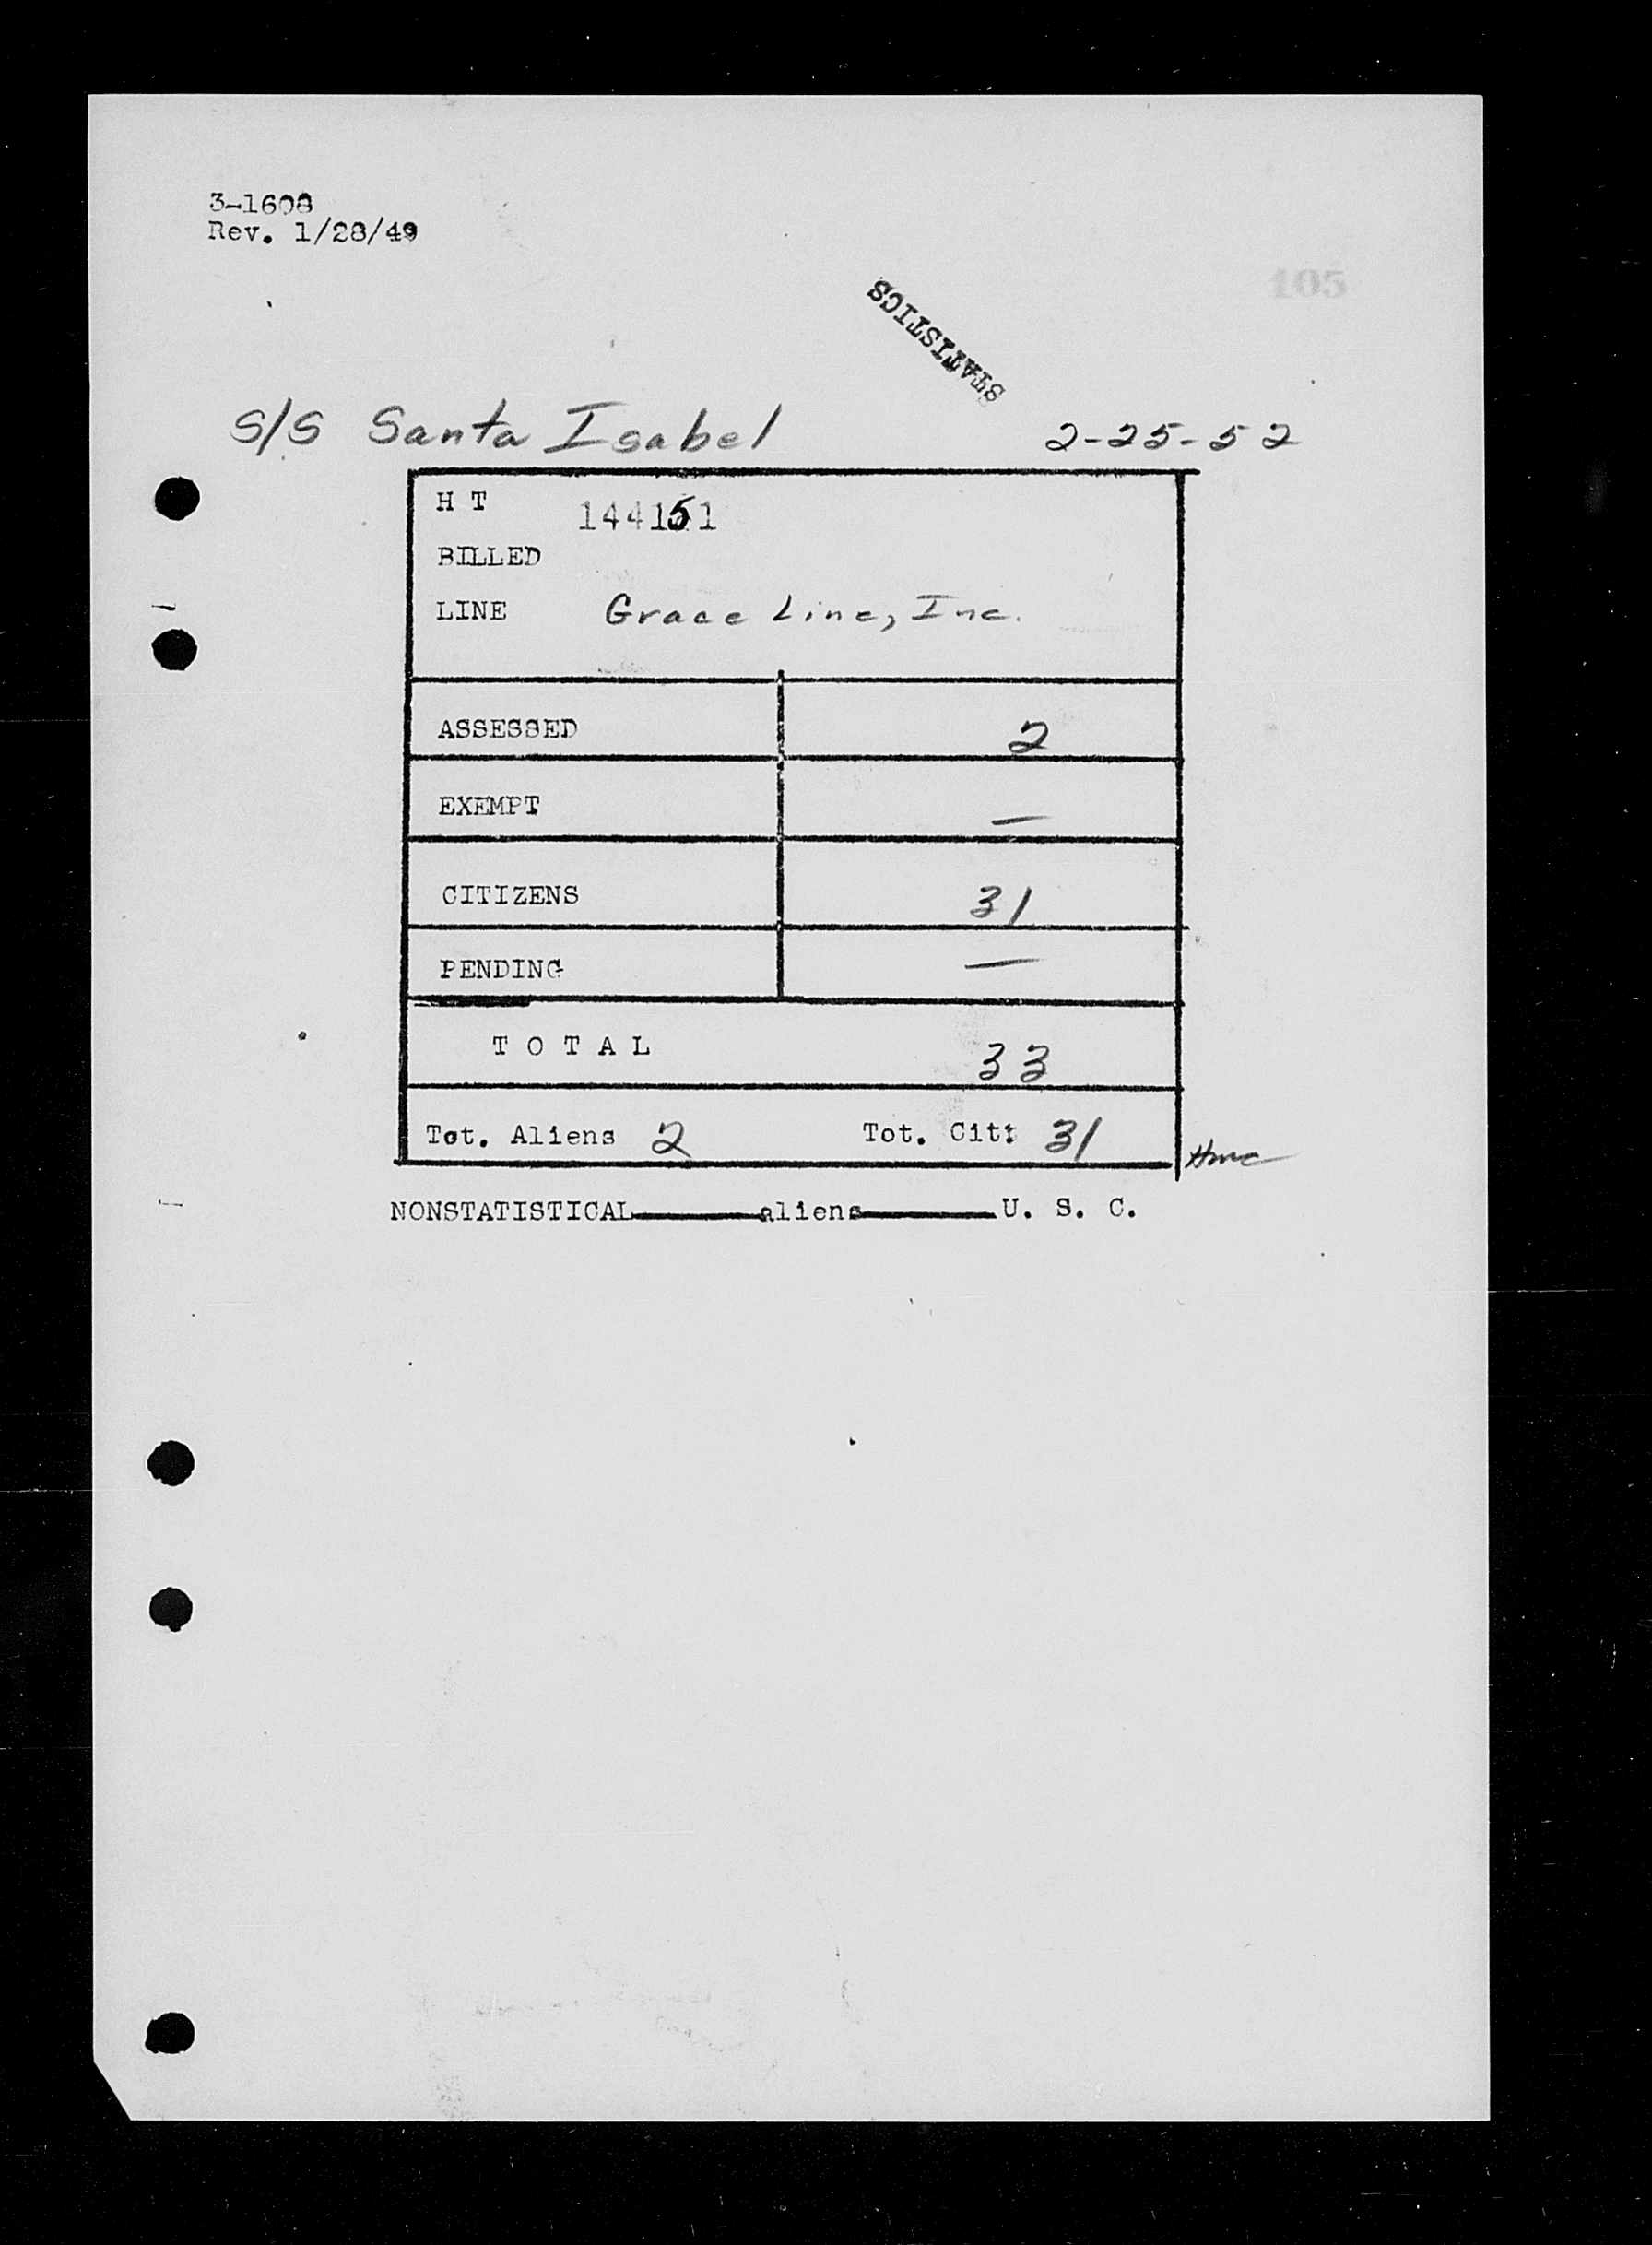 3-1608
Rev. 1/28/49
105
STATISTICS
S/S Santa Isabel 2-25-52
H T 144151
BILLED
LINE Grace Line, Inc.
ASSESSED 2
EXEMPT —
CITIZENS 31
PENDING —
T O T A L 33
Tot. Aliens 2 Tot. Cit: 31
NONSTATISTICAL______aliens______U. S. C.